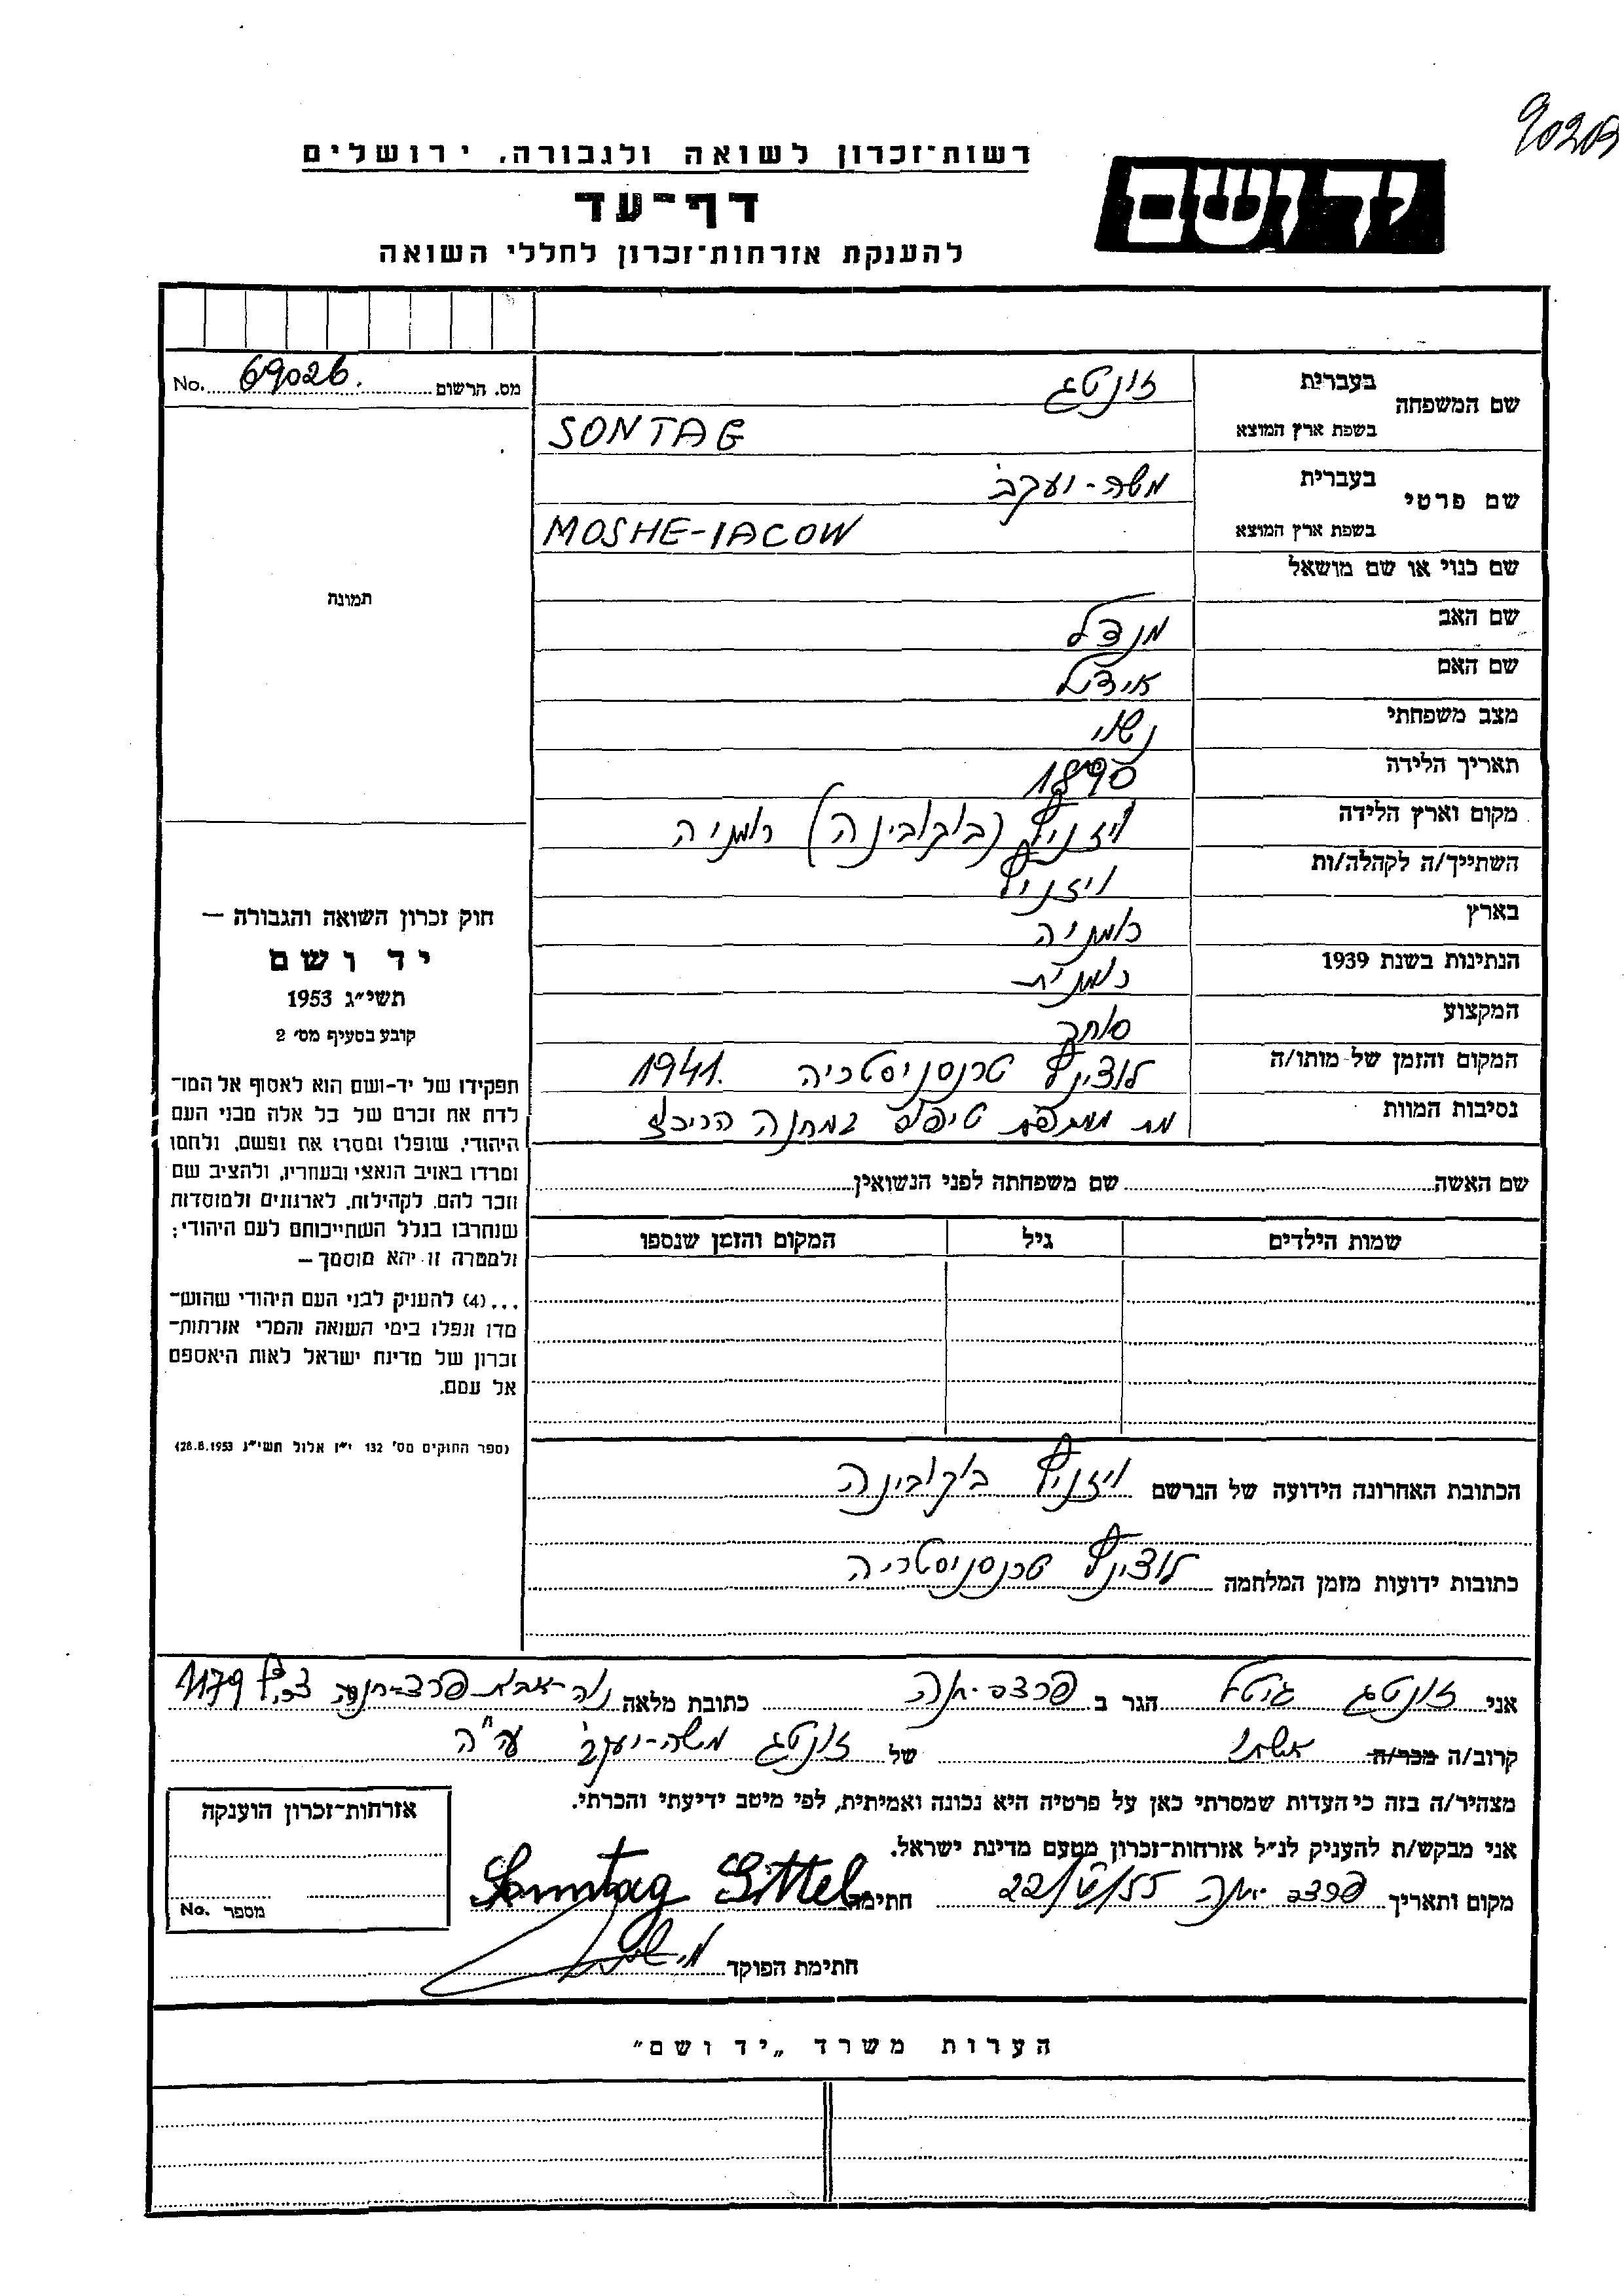 90203
רשות־זכרון לשואה ולגבורה, ירושלים
יד ושם
דף־עד
להענקת אזרחות־זכרון לחללי השואה
מס. הרשום 69026. No.
שם המשפחה
בעברית זונטג
בשפת ארץ המוצא SONTAG
שם פרטי
בעברית משה-יעקב
בשפת ארץ המוצא MOSHE-IACOW
שם כנוי או שם מושאל
שם האב מנדל
שם האם אידל
מצב משפחתי נשוי
תאריך הלידה 1890
מקום וארץ הלידה ויזניץ (בוקובינה) רומניה
השתייך/ה לקהלה/ות ויזניץ
בארץ רומניה
הנתינות בשנת 1939 רומנית
המקצוע סוחר
המקום והזמן של מותו/ה לוצינץ טרנסניסטריה 1941.
נסיבות המוות מת ממגפת טיפוס במחנה הריכוז
תמונה
חוק זכרון השואה והגבורה —
יד ושם
תשי״ג 1953
קובע בסעיף מס׳ 2
תפקידו של יד-ושם הוא לאסוף אל המו־
לדת את זכרם של כל אלה מבני העם
היהודי, שנפלו ומסרו את נפשם, נלחמו
ומרדו באויב הנאצי ובעוזריו, ולהציב שם
וזכר להם, לקהילות, לארגונים ולמוסדות
שנחרבו בגלל השתייכותם לעם היהודי;
ולמטרה זו יהא מוסמך —
...(4) להעניק לבני העם היהודי שהוש־
מדו ונפלו בימי השואה והמרי אזרחות־
זכרון של מדינת ישראל לאות היאספם
אל עמם.
(ספר החוקים מס׳ 132 י״ז אלול תשי״ג 28.8.1953)
שם האשה שם משפחתה לפני הנשואין
שמות הילדים גיל המקום והזמן שנספו
הכתובת האחרונה הידועה של הנרשם ויזניץ בוקובינה
כתובות ידועות מזמן המלחמה לוצינץ טרנסניסטריה
אני זונטג גיטל הגר ב פרדס-חנה כתובת מלאה נוה-אבות פרדס-חנה צריף 1179
קרוב/ה מכר/ה אשתו של זונטג משה-יעקב ע"ה
מצהיר/ה בזה כי העדות שמסרתי כאן על פרטיה היא נכונה ואמיתית, לפי מיטב ידיעתי והכרתי.
אני מבקש/ת להעניק לנ״ל אזרחות־זכרון מטעם מדינת ישראל.
מקום ותאריך פרדס חנה חתימה Sonntag Gittel
חתימת הפוקד
אזרחות־זכרון הוענקה
מספר No.
הערות משרד „יד ושם"